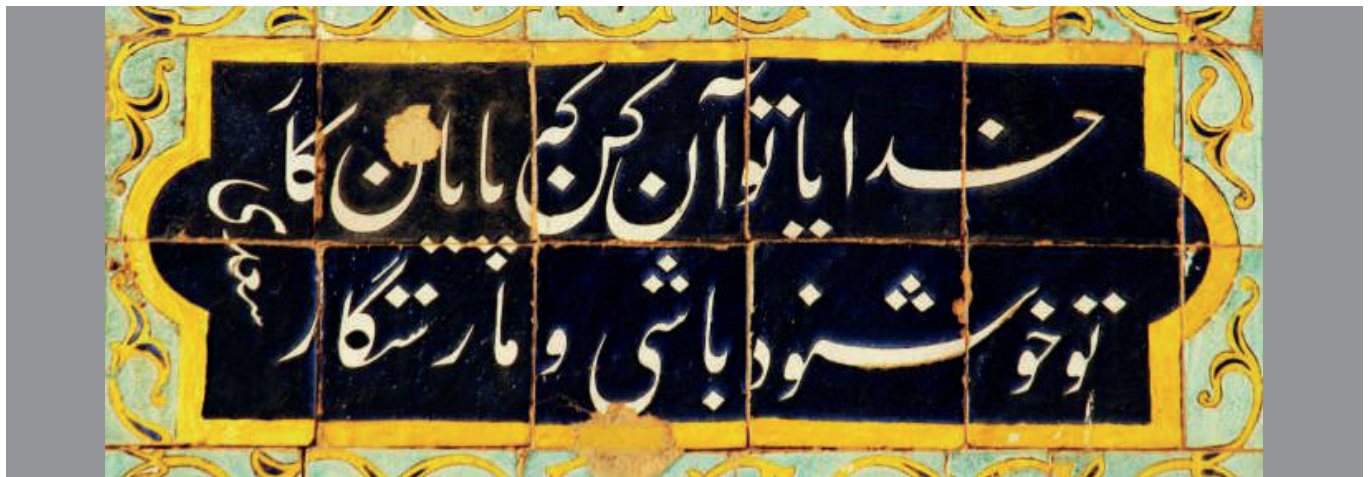 خدایا تو آن کن که پایان کار
تو خوشنود باشی و ما رستگار
سعدی